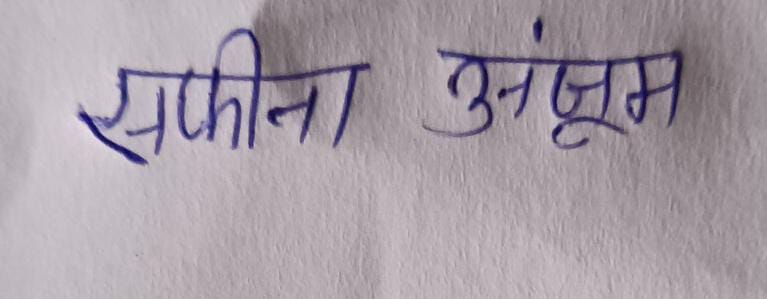 सफीना अंजूम